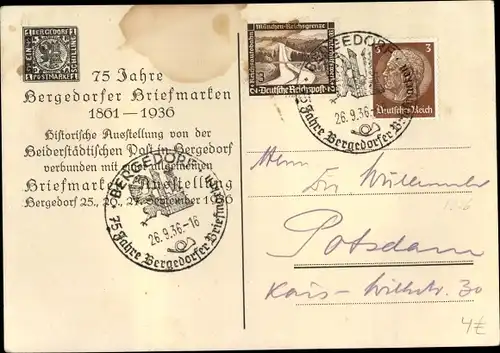 BERGEDORF
EIN
SCHILLING
POSTMARKE
75 Jahre
Bergedorfer Briefmarken
1861—1936
Historische Ausstellung von der
Beiderstädtischen Post in Bergedorf
verbunden mit
allgemeinen
Briefmarken Ausstellung
Bergedorf 25., 27. September 1936
BERGEDORF
26.9.36.-16
75 Jahre Bergedorfer
München-Reichsgrenze
3
Deutsche Reichspost
BERGEDORF
26.9.36
75 Jahre Bergedorfer
3
3
Deutsches Reich
Herrn
Potsdam
30
4€